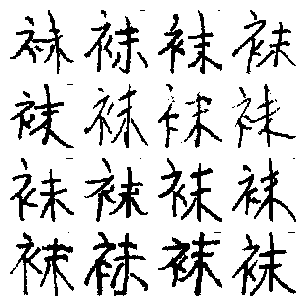 袜袜袜袜
袜袜袜袜
袜袜袜袜
袜袜袜袜